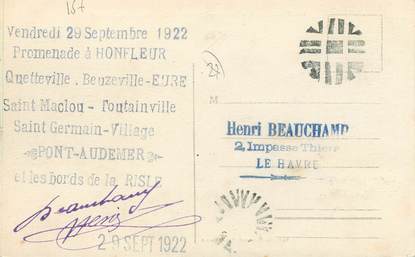 157
Vendredi 29 Septembre 1922
Promenade à HONFLEUR
Quetteville. Beuzeville-EURE
Saint-Maclou - Toutainville
Saint Germain-Village
PONT-AUDEMER
et les bords de la RISLE
Beauchamp
Henri
29 SEPT 1922
27
M
Henri BEAUCHAMP
2, Impasse Thiers
LE HAVRE